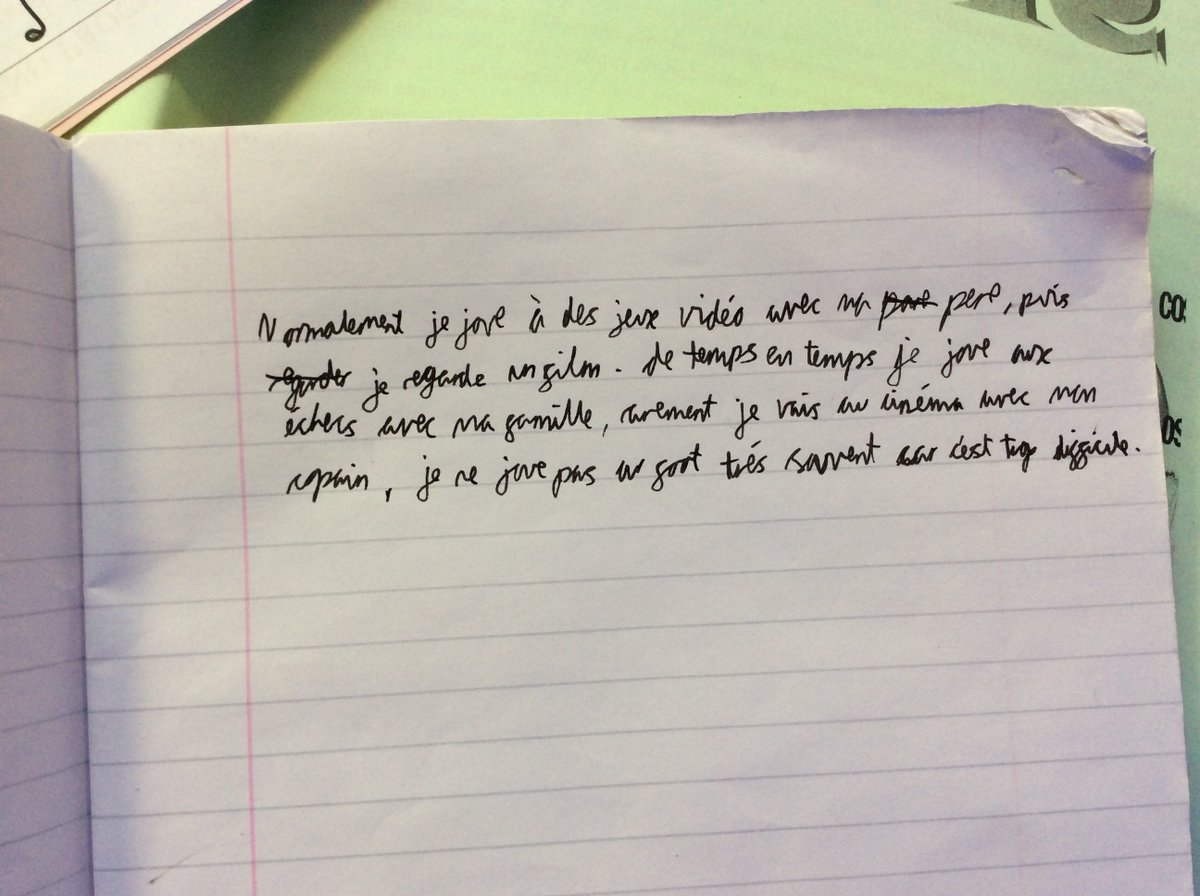 Normalement je joue à des jeux vidéo avec ma pere, puis
je regarde un film. De temps en temps je joue aux
échecs avec ma famille, rarement je vais au cinéma avec mon
copain, je ne joue pas au foot trés souvent car c'est trop difficile.
CO
OS